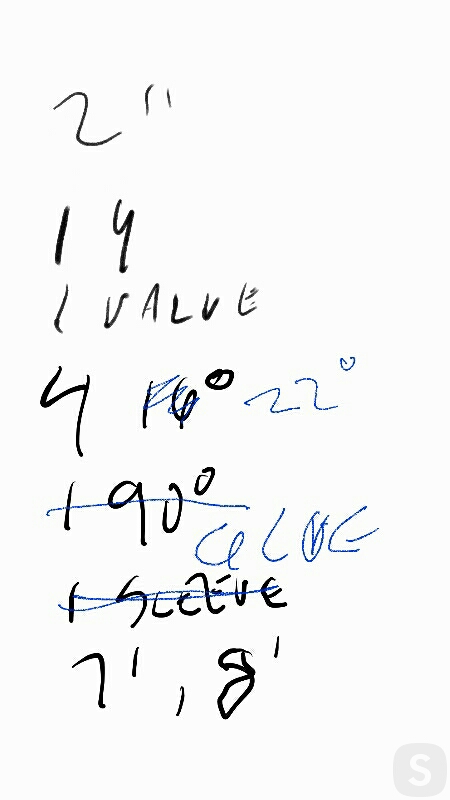 2"
1 Y
1 VALVE
4 16° 22°
1 90°
GLUE
1 SLEEVE
7', 8'
S